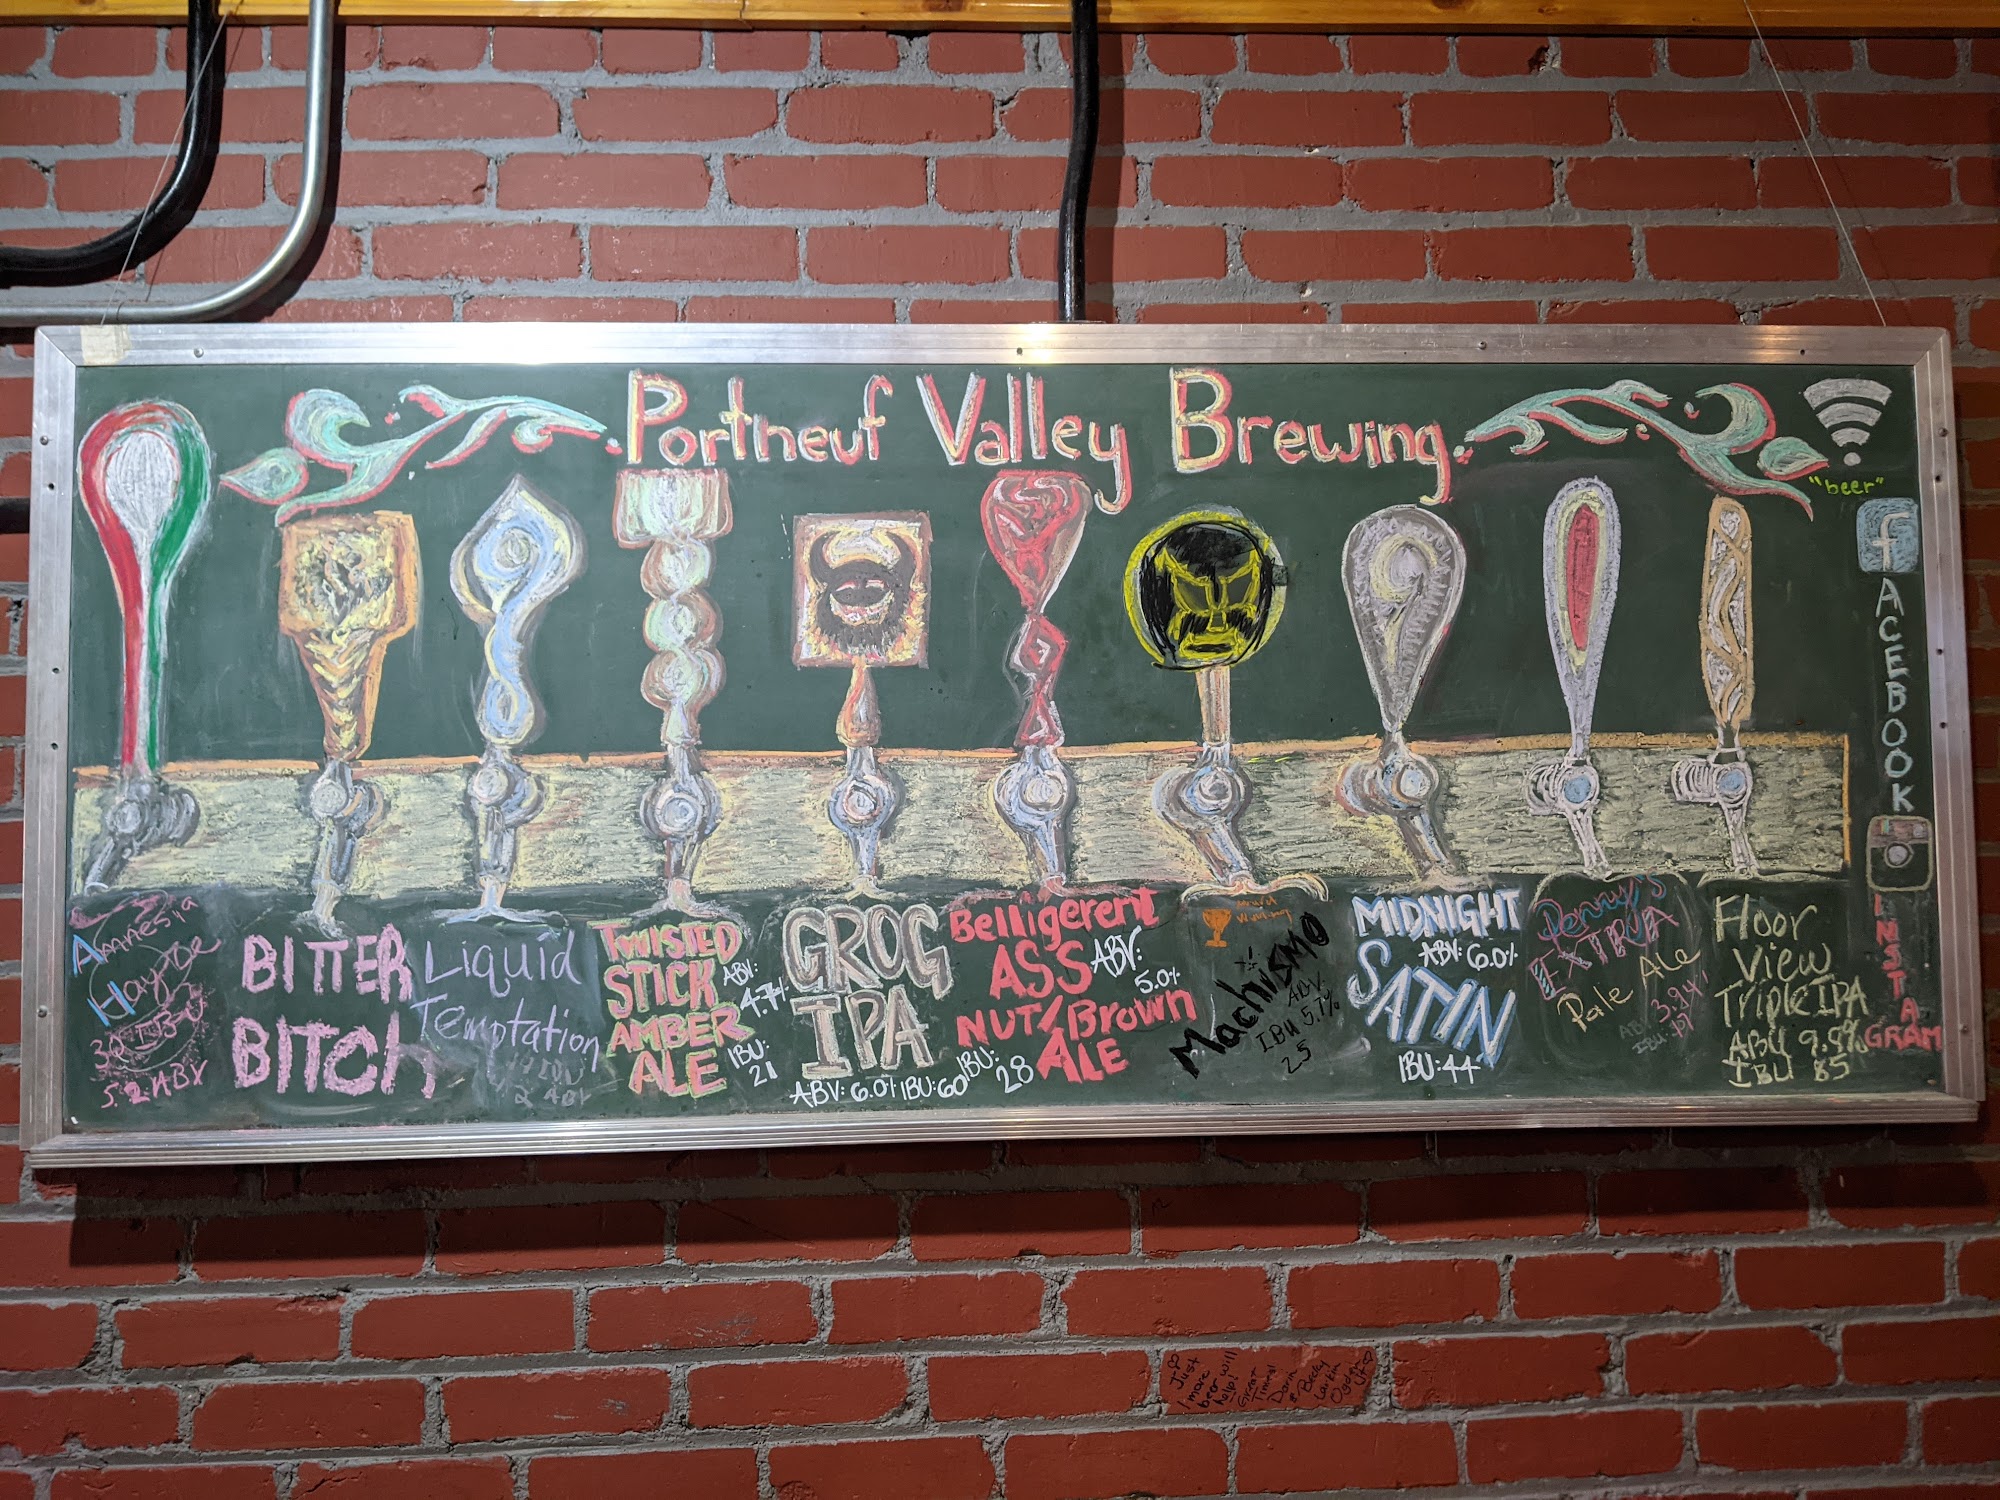 Portneuf Valley Brewing.
"beer"
fACEBOOK
INSTA
GRAM
Amnesia
BITTER
BITCh
Liquid
Temptation
2 ABV
TWISTED
STICK
AMBER
ALE
ABV:
4.7%
IBU:
21
GROG
IPA
ABV: 6.0% IBU: 60
Belligerent
ASS
NUT/Brown
ALE
ABV:
5.0%
IBU:
28
Award
Winning
MachisMO
ABV
5.7%
IBU
25
MIDNIGHT
ABV: 6.0%
SATIN
IBU: 44
Penny's
EXTRA
Pale Ale
ABV 3.94
IBU
Floor
View
Triple IPA
ABV 9.9%
IBU 85
5.2 ABV
Just
1 more
beer will
help!
Great
Times!
Darin
& Becky
Larkin
Ogden
UT